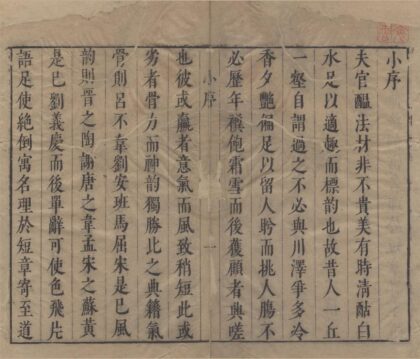 小序
夫官醞法材非不貴美有時清酤白
水足以適趣而標韵也故昔人一丘
一壑自謂過之不必與川澤爭多冷
香夕艷福足以留人聆而挑人腸不
必歷年稹飽霜雪而後獲顧者與嗟
小序
一
也彼或贏者意氣而風致稍短此或
劣者骨力而神韵獨勝此之典籍氣
骨則呂不韋劉安班馬屈宋是已風
韵則晉之陶謝唐之韋孟宋之蘇黃
是已劉義慶而後單辭可使色飛片
語足使絶倒寓名理於短章寄至道